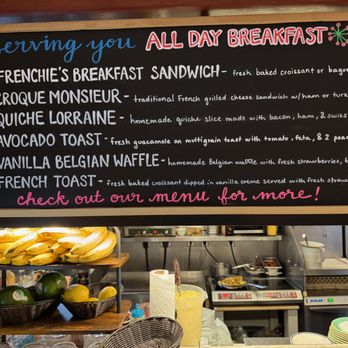 serving you ALL DAY BREAKFAST
FRENCHIE'S BREAKFAST SANDWICH - fresh baked croissant or
CROQUE MONSIEUR - traditional French grilled cheese sandwich w/ ham or
QUICHE LORRAINE - homemade quiche slice made with bacon, ham, & swiss
AVOCADO TOAST - fresh guacamole on multigrain toast with tomato, feta, & 2
VANILLA BELGIAN WAFFLE - homemade Belgian waffle with fresh strawberries,
FRENCH TOAST - fresh baked croissant dipped in vanilla creme served with fresh
check out our menu for more!